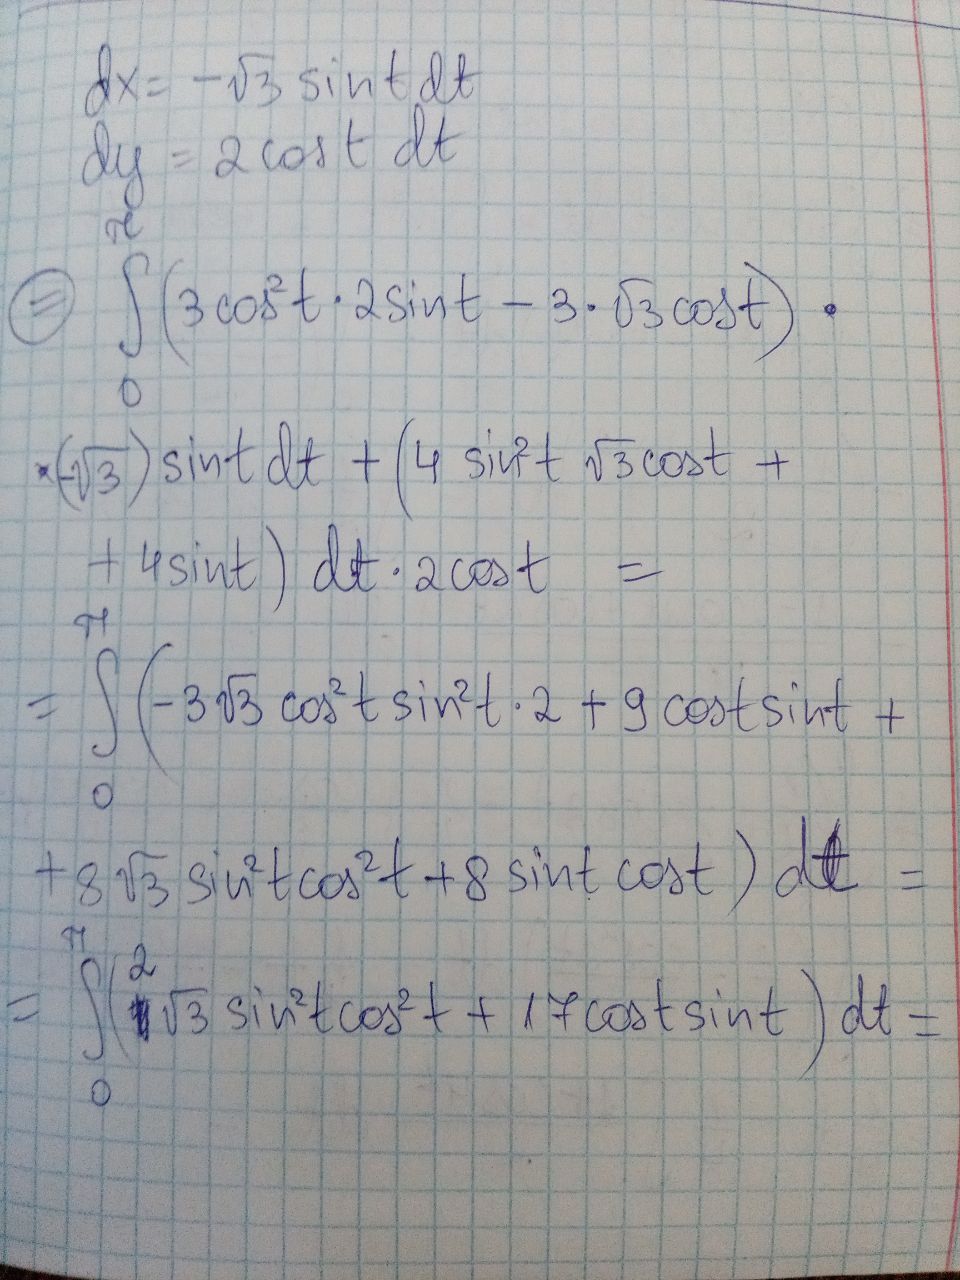 dx = -√3 sint dt
dy = 2 cost dt
⊜ ∫₀^π (3 cos²t · 2 sint - 3 · √3 cost) ·
· (-√3) sint dt + (4 sin²t √3 cost +
+ 4 sint) dt · 2 cost =
= ∫₀^π (-3√3 cos²t sin²t · 2 + 9 cost sint +
+ 8√3 sin²t cos²t + 8 sint cost) dt =
= ∫₀^π (2√3 sin²t cos²t + 17 cost sint) dt =